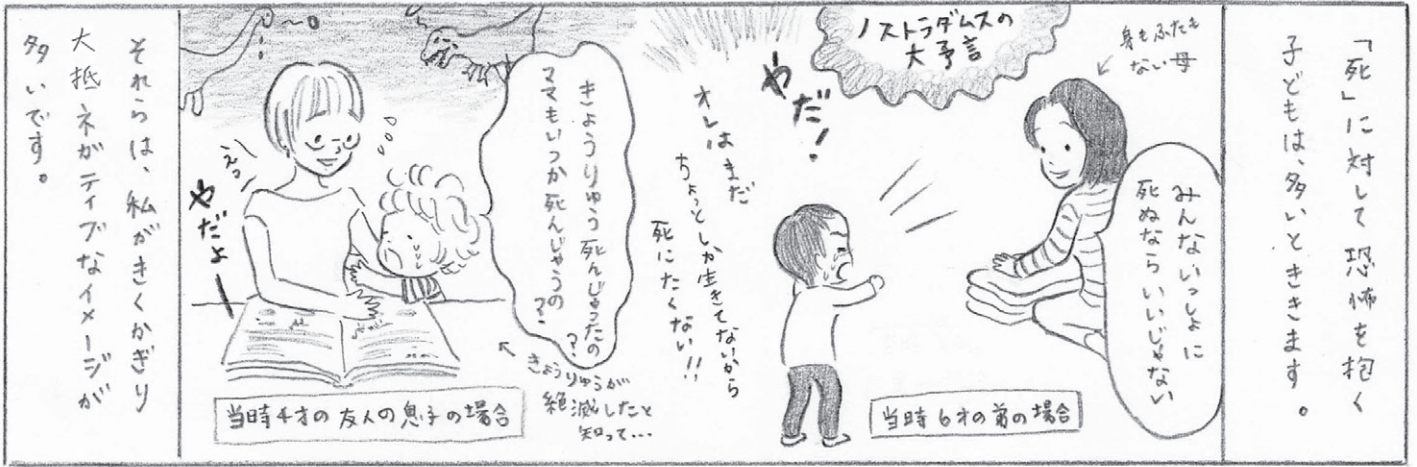 「死」に対して恐怖を抱く
子どもは、多いとききます。
身もふたも
ない母
みんないっしょに
死ぬならいいじゃない
ノストラダムスの
大予言
やだ!
オレはまだ
ちょっとしか生きてないから
死にたくない!!
当時6才の弟の場合
きょうりゅう死んじゃったの?
ママもいつか死んじゃうの?
きょうりゅうが
絶滅したと
知って…
えっ
やだよー
当時4才の友人の息子の場合
それらは、私がきくかぎり
大抵ネガティブなイメージが
多いです。